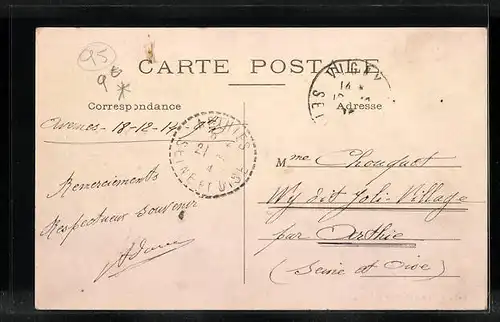 95
9
CARTE POSTALE
Correspondance
Adresse
VIGNY
SEI
14
Avernes - 18-12-14
21
SEINE ET OISE
Remerciements
Respectueux souvenir
Mme Chouquet
Wy dit Joli-Village
par Arthie
(Seine et Oise)